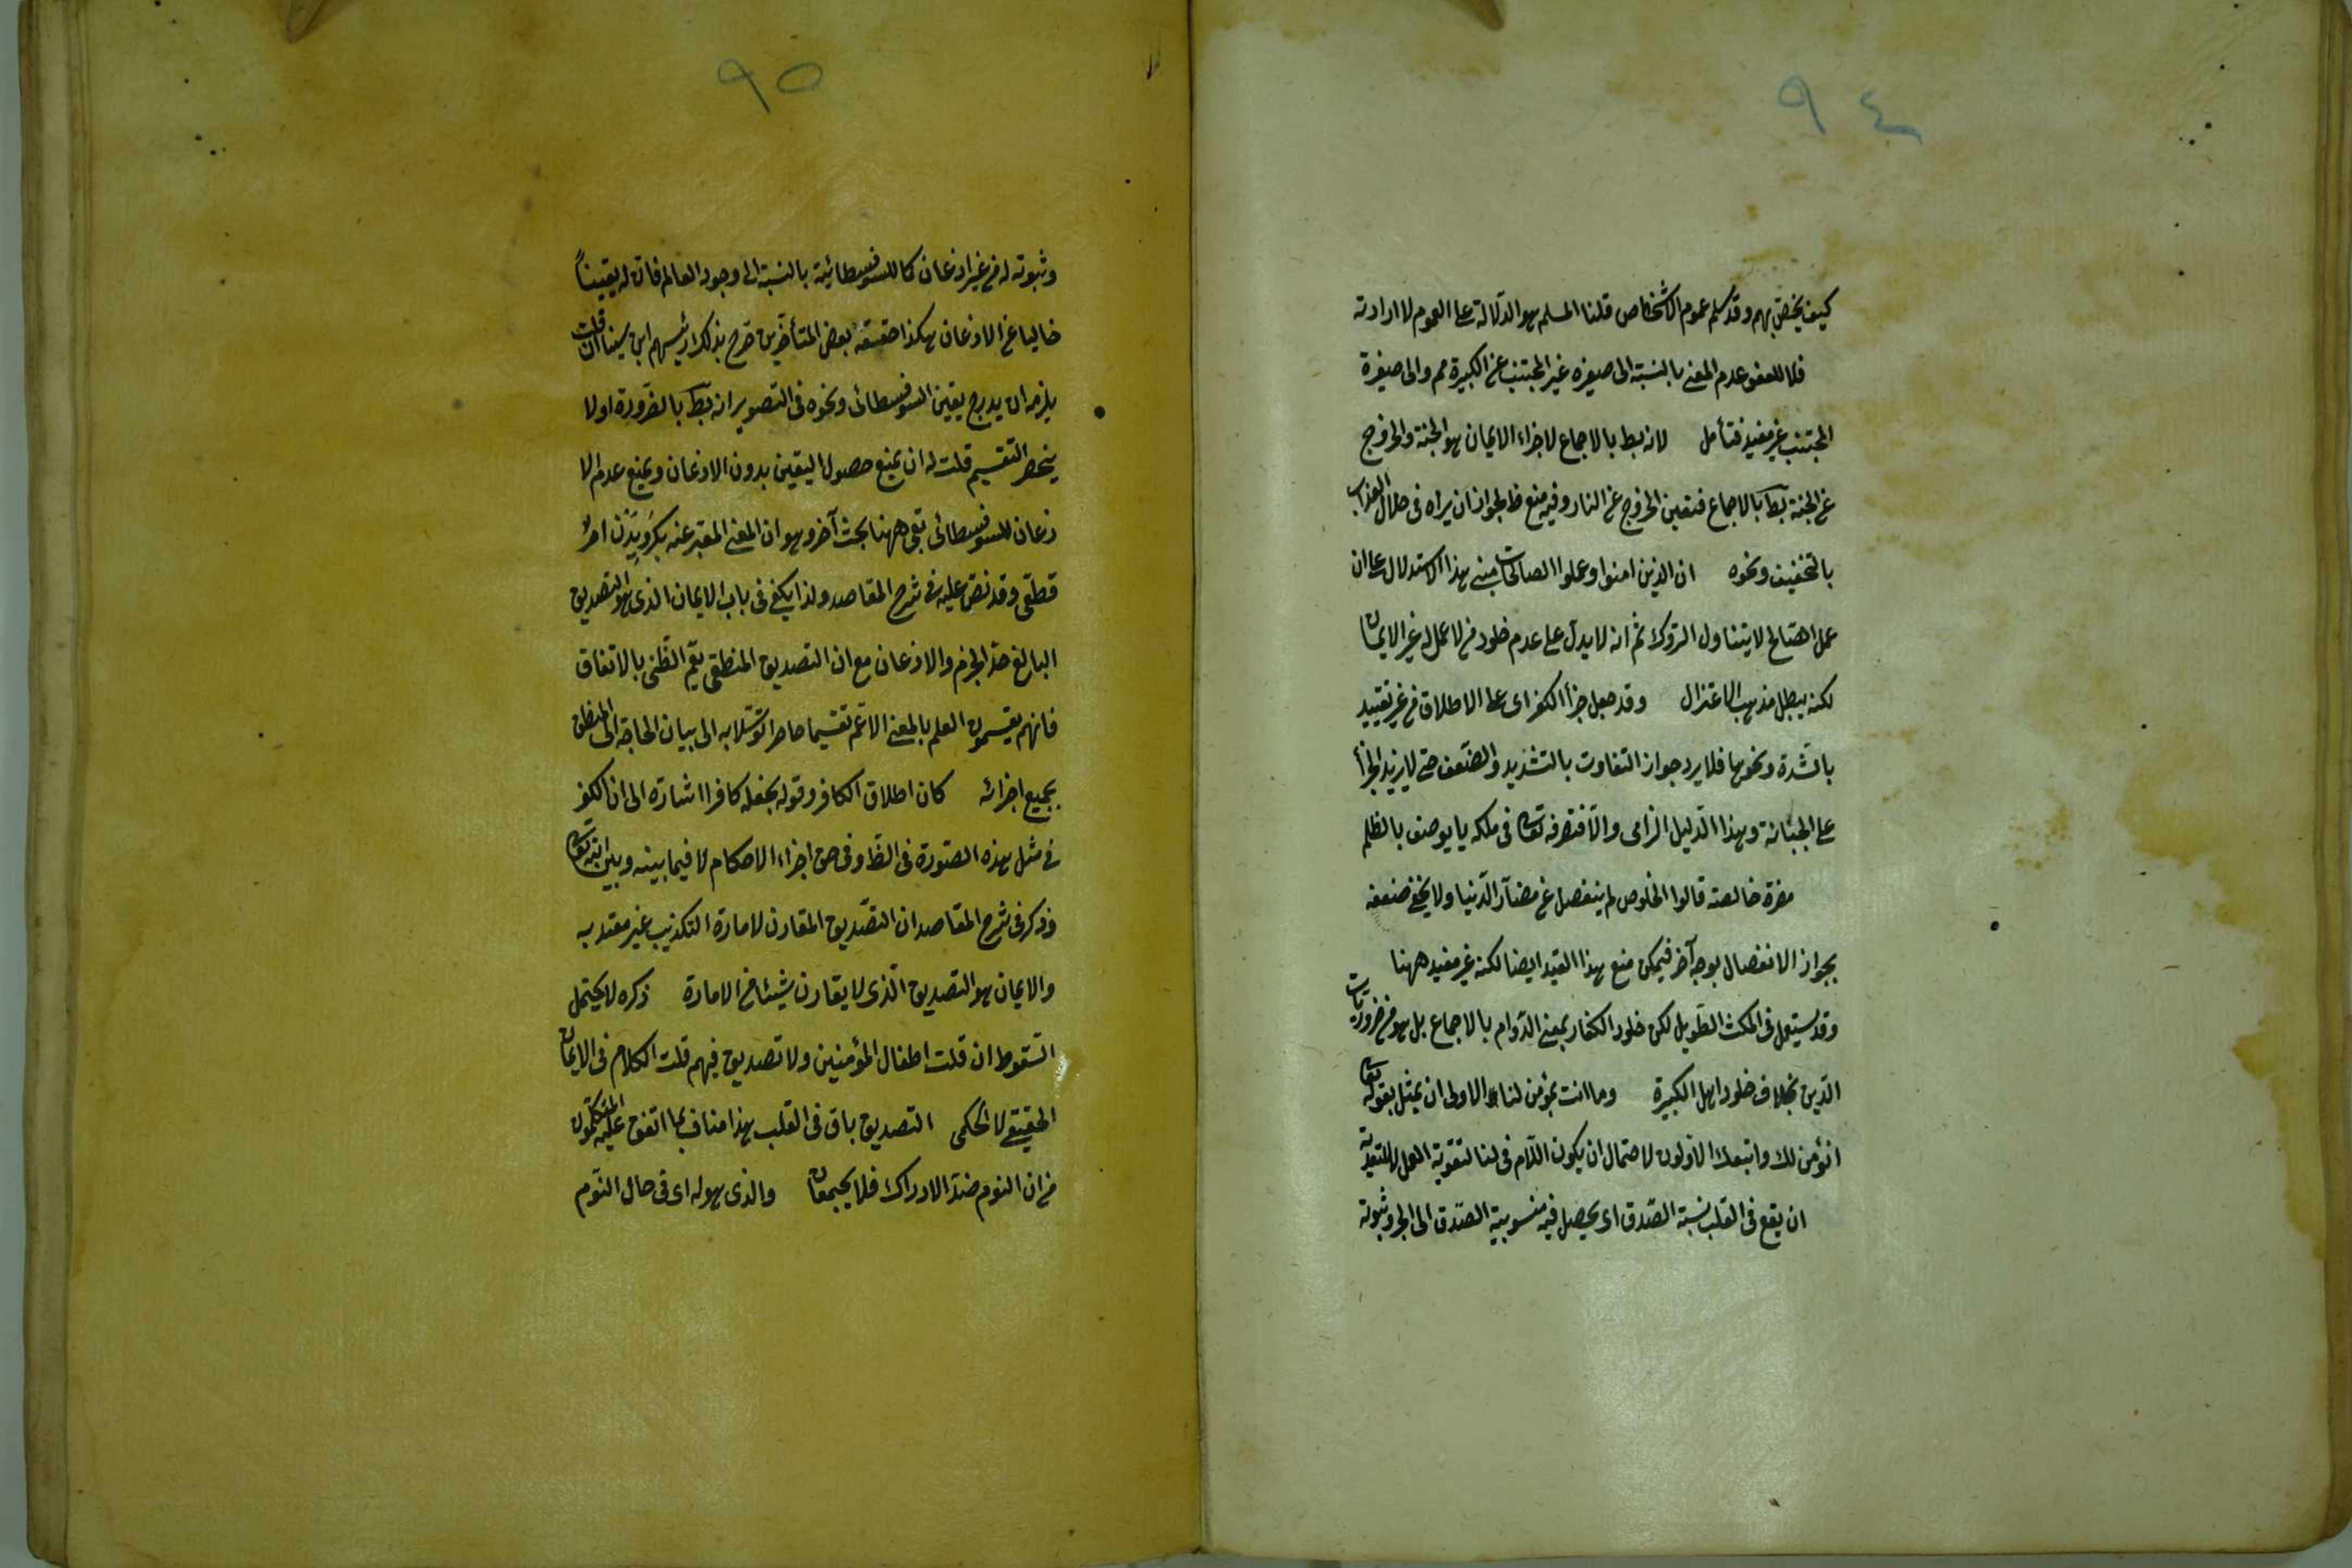 ٩٤
كيف يختص بهم وقد سلم عموم الاشخاص قلنا المسلم هو الدلالة على العموم لا ارادته
فلا للعفو عدم المعنى بالنسبة الى صغيره غير المجتنب عن الكبيرة مم والى صغيرة
المجتنب غير مفيد فتأمل لانه بط بالاجماع لا جزاء الايمان هو الجنة والخروج
عن الجنة بط بالاجماع فتعين الخروج عن النار وفيه منع ظ لجواز ان يراه فى خلال العذاب
بالتخفيف ونحوه ان الذين امنوا وعملوا الصالحات مبنى هذا الاستدلال على ان
عمل الصالح لا يتناول التروك ثم انه لا يدل على عدم خلود من لا عمل له غير الايمان
لكنه يبطل مذهب الاعتزال وقد جعل جزأ الكفر اى على الاطلاق من غير تقييد
بالشدة ونحوها فلا يرد جواز التفاوت بالتشديد والضعف حتى لا يزيد الجزأ
على الجناية وهذا الدليل الزامى والا فتصرفه تعالى فى ملكه لا يوصف بالظلم
مضرة خالصة قالوا الخلوص لم ينفصل عن مضار الدنيا ولا يخفى ضعفه
بجواز الانفصال بوجه آخر فيمكن منع هذا القيد ايضا لكنه غير مفيد ههنا
وقد يستعمل فى المكث الطويل لكن خلود الكفار بمعنى الدوام بالاجماع بل هو من ضروريات
الدين بخلاف خلود اهل الكبيرة وما انت بمؤمن لنا الاولى ان يمثل بقوله تعالى
انؤمن لك واتبعك الارذلون لاحتمال ان يكون اللام فى لنا لتقوية العمل لا للتعدية
ان يقع فى القلب نسبة الصدق اى يحصل فيه منسوبية الصدق الى الخبر وثبوته
٩٥
وثبوته له من غير اذعان كما للسوفسطائية بالنسبة الى وجود العالم فان له يقينا
خاليا عن الاذعان هكذا حققه بعض المتأخرين صرح بذلك رئيسهم ابن سينا ان قلت
يلزمه ان يدرج يقين السوفسطائى ونحوه فى التصوير انه بط بالضرورة او لا
ينحصر التقسيم قلت له ان يمنع حصول اليقين بدون الاذعان ويمنع عدم الا
ذعان للسوفسطائى بقى ههنا بحث آخر وهو ان المعنى المعبر عنه بكرويدن امر
قطعى وقد نص عليه فى شرح المقاصد ولذا يكفى فى باب الايمان الذى هو التصديق
البالغ حد الجزم والاذعان مع ان التصديق المنطقى يعم الظنى بالاتفاق
فانهم يقسمون العلم بالمعنى الاعم تقسيما حاصرا توسلا به الى بيان الحاجة الى المنطق
بجميع اجزائه كان اطلاق الكافر وقوله بجعله كافرا اشارة الى ان الكفر
فى مثل هذه الصورة فى الظ وفى حق اجراء الاحكام لا فيما بينه وبين الله تعالى
وذكر فى شرح المقاصد ان التصديق المقارن لامارة التكذيب غير معتد به
والايمان هو التصديق الذى لا يقارن شيئا من الامارة ذكره لا يحتمل
السقوط ان قلت اطفال المؤمنين ولا تصديق فيهم قلت الكلام فى الايمان
الحقيقى لا الحكمى التصديق باق فى القلب هذا مناف لما اتفق عليه المتكلمون
من ان النوم ضد الادراك فلا يجتمعان والذى هو له اى فى حال النوم